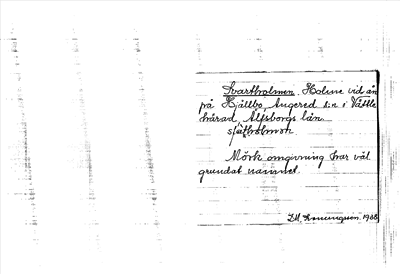 Svartholmen. Holme vid ån
på Hjällbo, Angered s:n i Vättle
härad, Älfsborgs län.
Mörk omgivning har väl
grundat namnet.
1968